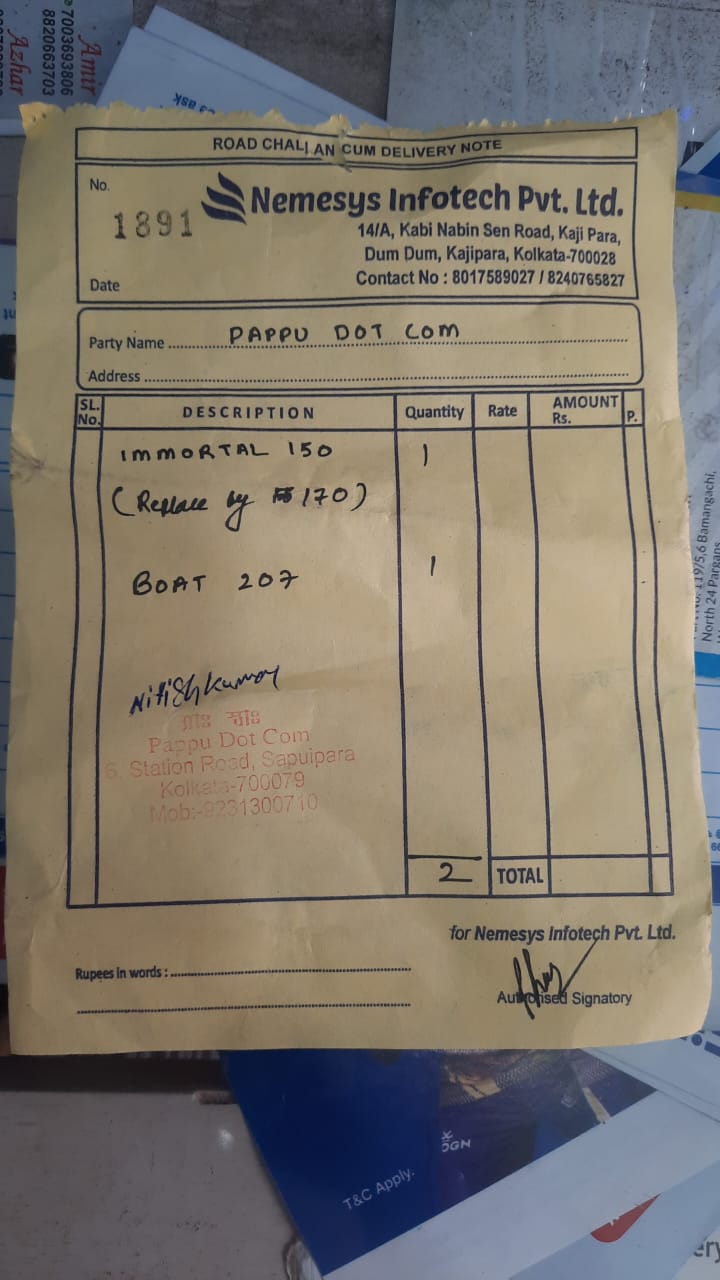 Amir
7003693806
8820663703
Azhar
ask
ROAD CHALLAN CUM DELIVERY NOTE
No.
1891
Nemesys Infotech Pvt. Ltd.
14/A, Kabi Nabin Sen Road, Kaji Para,
Dum Dum, Kajipara, Kolkata-700028
Date
Contact No : 8017589027 / 8240765827
Party Name PAPPU DOT COM
Address
SL. No. DESCRIPTION Quantity Rate AMOUNT Rs. P.
IMMORTAL 150 1
(Replace by 170)
BOAT 207 1
Nitish Kumar
Pappu Dot Com
6, Station Road, Sapuipara
Kolkata-700079
Mob:-9231300710
2 TOTAL
for Nemesys Infotech Pvt. Ltd.
Rupees in words :
Authorised Signatory
119/5,6 Bamangachi,
North 24 Pargan
DGN
T&C Apply.